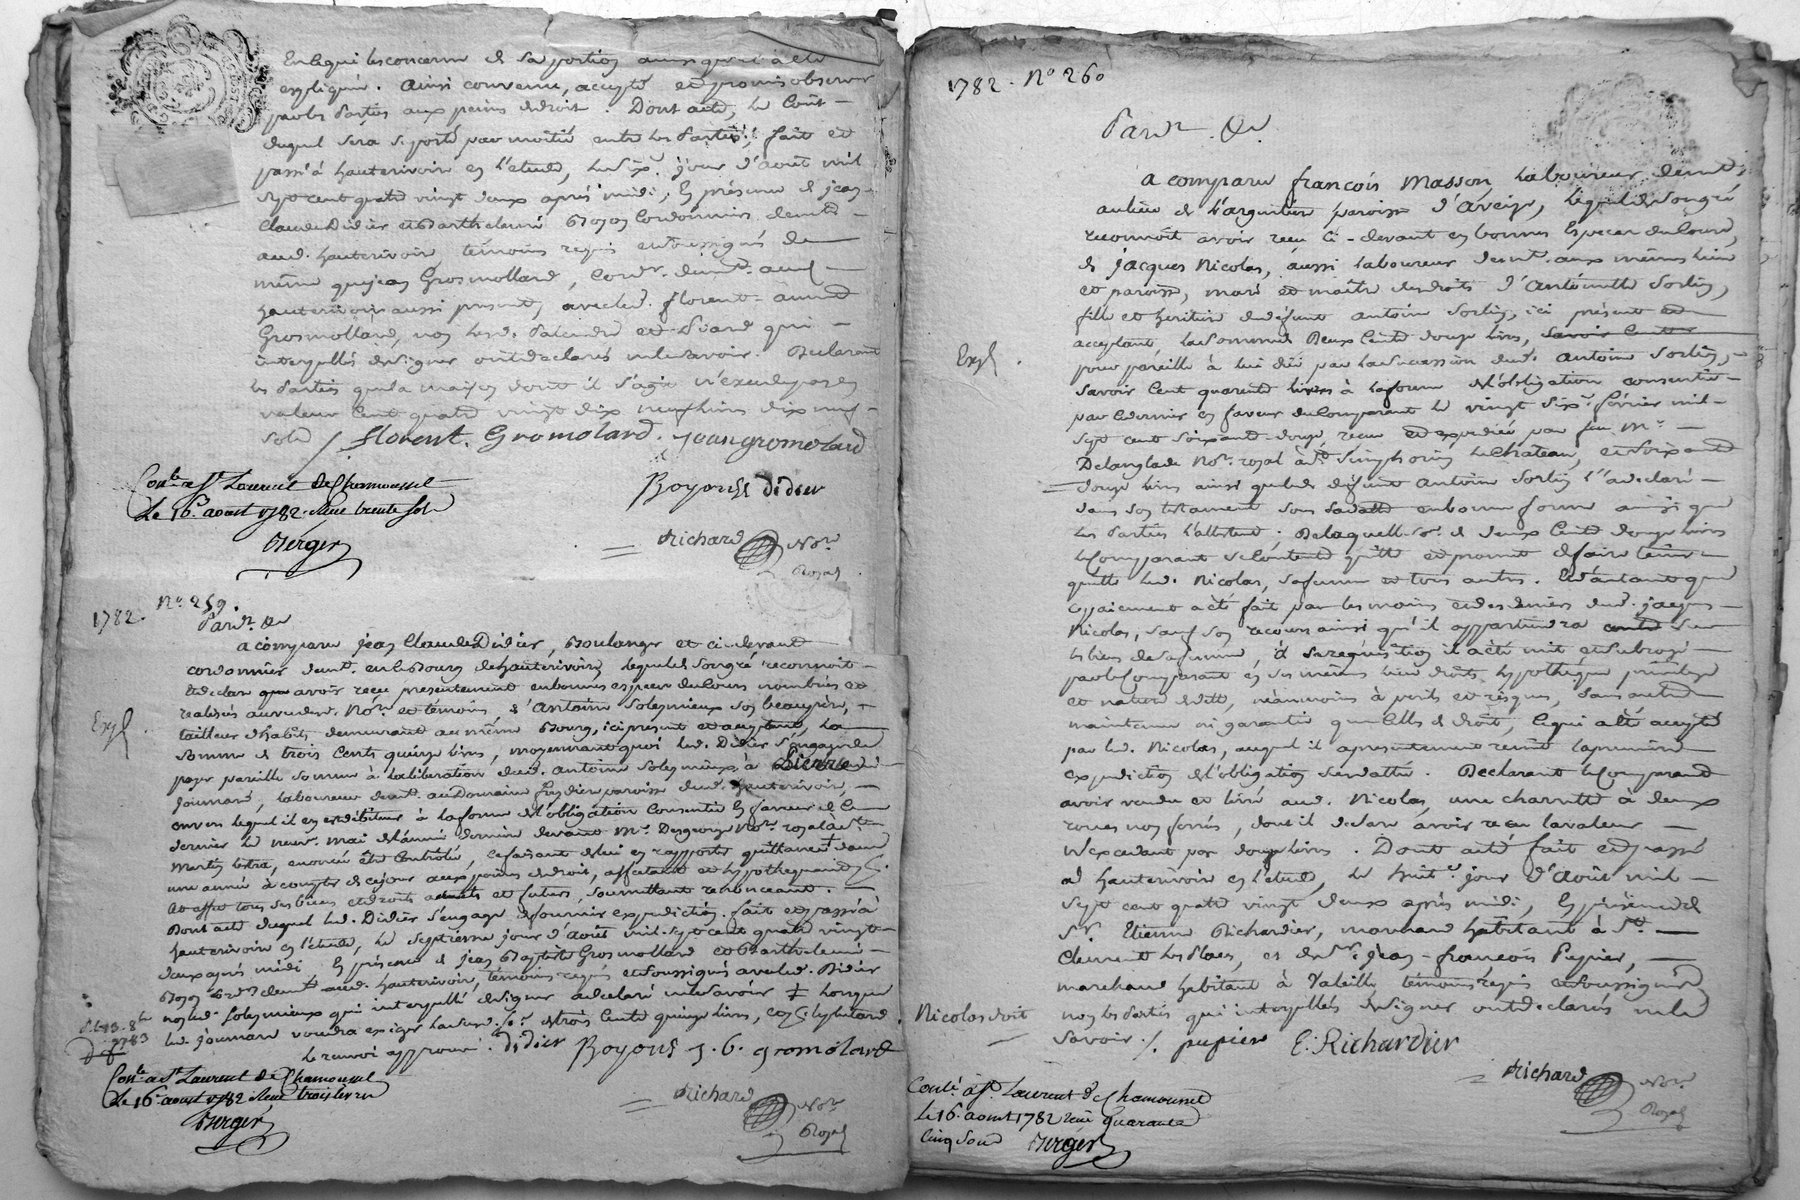 en ce qui les concerne et sa portion ainsi qu'il a été
expliqué. Ainsi convenu, accepté et promis observer
par les Parties aux peines de droit. Dont acte, le Coût
duquel sera supporté par moitié entre les Parties, fait et
passé à hauterivoire en l'étude, le six.e jour d'août mil
sept cent quatre vingt deux après midi, En présence de jean
Claude Didier et Barthelemi Boyon Cordonniers demt
aud. hauterivoire, témoins requis et soussignés de
même que jean Grosmollard, Cord.r demt. aud.
hauterivoire aussi présent, avec led. florent
Grosmollard, non lesd. et qui
interpellés de signer ont déclaré ne le savoir. Déclarant
les Parties que la maison dont il s'agit n'excede pas en
valeur Cent quatre vingt dix neuf livres dix neuf
sols /. florent. Gromolard. jean gromolard
Con.lé a St. Laurent De Chamousset Boyond didier
Le 16.e aoust 1782. Reçu trente sols
Berger Richard No.re
Royal
1782. N.o 259.
Pard.t &a
a comparu jean Claude Didier, Boulanger et ci-devant
cordonnier demt. au Bourg de hauterivoire, lequel de son gré reconnoit
et declare avoir reçu presentement en bonnes especes du Cours nombrées et
realisés au vu desd. No.re et témoins d'Antoine Soleymieux son beaupère,
Expé. tailleur d'habits demeurant au même Bourg, ici present et acceptant, la
somme de trois Cents quinze livres, moyennant quoi led. Didier s'engage de
payer pareille somme à la liberation dud. Antoine Soleymieux à Pierre
Journard, laboureur demt. au Domaine paroisse dud. hauterivoire,
envers lequel il en est débiteur à la forme de l'obligation Consentie En faveur de Ce
dernier le neuv. mai de l'année derniere devant M.e Desgeorge No.re royal à St.
Martin lestra, en orrée être Controlée, ce faisant de lui en rapporter quittance dans
une année à compter de ce jour aux peines de droit, affectant et hypothequant
tous ses biens et droits presents et futurs, soumettant renonceant.
Dont acte duquel led. Didier s'engage de fournir expedition. fait et passé à
hauterivoire en l'étude, le septième jour d'août mil sept cent quatre vingt
deux après midi En présence de Jean Baptiste Grosmollard et Barthelemi
Boyon Cord.rs demt. aud. hauterivoire, témoins requis et soussignés avec led. Didier
non led. Soleymieux qui interpellé de signer a declaré ne le savoir ‡ lorsque
led. journard voudra exiger lad. s.e de trois Cents quinze livres,
le renvoi approuvé. didier Boyond j. b. gromolard
1783
Con.lé a St. Laurent De Chamousset
Le 16.e aoust 1782 Reçu trois livres Richard No.re
Berger Royal
1782. N.o 260
Pard.t &a
a comparu françois Masson, laboureur demt.
au lieu de l'argentiere paroisse d'Aveize, lequel de son gré
reconnoit avoir reçu Ci-devant en bonnes Especes du Cours,
de jacques Nicolas, aussi laboureur demt. aux mêmes lieu
et paroisse, mari et maître des droits d'Antoinette Sorlin,
fille et heritiere de défunt antoine Sorlin, ici présent et
acceptant, la somme Deux Cents douze livres,
Expé. pour pareille à lui dûe par la succession dud. antoine Sorlin,
savoir Cent quarante livres à la forme de l'obligation consentie
par ce dernier en faveur du Comparant le vingt six.e février mil
sept cent soixante-douze, reçue et expediée par feu M.e
Delanglade No.re royal à St. Simphorien le Chateau, et soixante
douze livres ainsi que led. défunt Antoine Sorlin l'a declaré
dans son testament sous sa date en bonne forme ainsi que
les Parties l'attestent. De laquelle so.e de deux Cents douze livres
le Comparant se Contente quitte et promet de faire tenir
quitte led. Nicolas, sa femme et tous autres. Et d'autant que
ce paiement a été fait par les mains et des deniers dud. jacques
Nicolas, sauf son recours ainsi qu'il appartiendra sur
les biens de sa femme, à sa requisition il a été mis et subrogé
par le Comparant en ses mêmes lieu droits, hypothèque, privilege
et nature de dette, néanmoins à perils et risques, sans autre
maintenue ni garantie que celles de droit, Ce qui a été accepté
par led. Nicolas, auquel il a presentement remis la premiere
expedition de l'obligation susdattée. Déclarant le Comparant
avoir vendu et livré aud. Nicolas, une charrette à deux
roues non ferrés, dont il declare avoir reçu la valeur
n'excedant pas douze livres. Dont acte fait et passé
à hauterivoire en l'étude, le huit.e jour d'août mil
sept cent quatre vingt deux après midi, En présence de
S.r Etienne Richardier, marchand habitant à St.
Clement les Places, et de S.r jean-françois Pupier,
marchand habitant à Valeille témoins requis et soussignés
Nicolas doit non les Parties qui interpellés de signer ont déclaré ne le
savoir /. pupier E. Richardier
Richard No.re
Royal
Con.lé a St. Laurent de Chamousset
Le 16. aoust 1782 reçu quarante
Cinq sous Berger